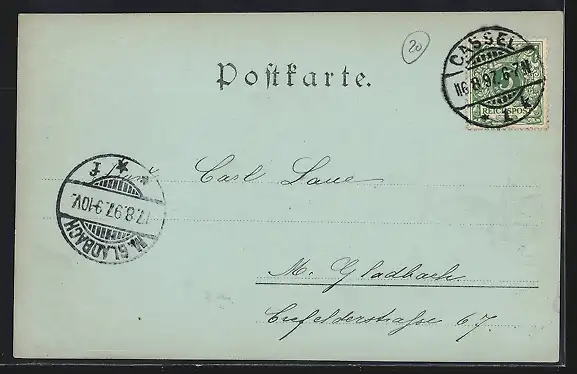 20
CASSEL
16.8.97.6-7N.
* 1 f
5
REICHSPOST
Postkarte.
Carl Laue
17.8.97.9-10V.
M. GLADBACH
M. Gladbach
Crefelderstraße 67.